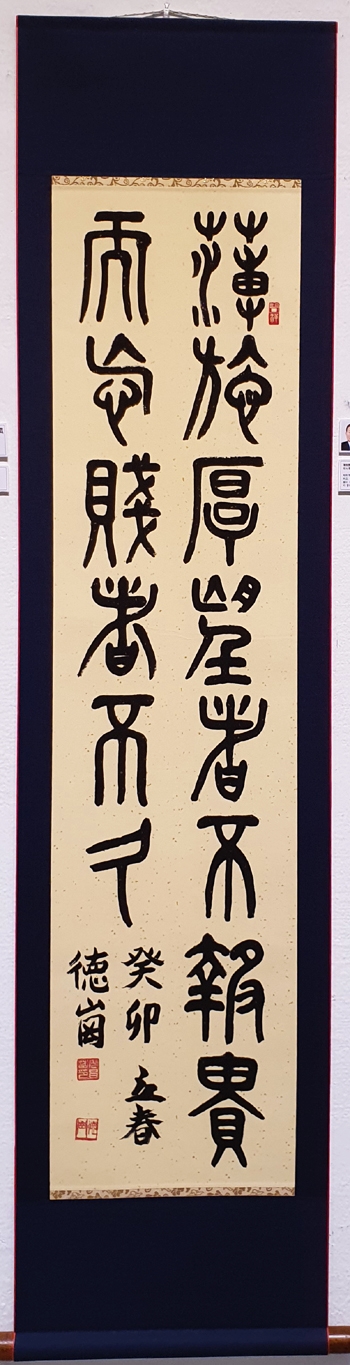 薄施厚望者不報貴
而忘賤者不久
癸卯 立春
德崗